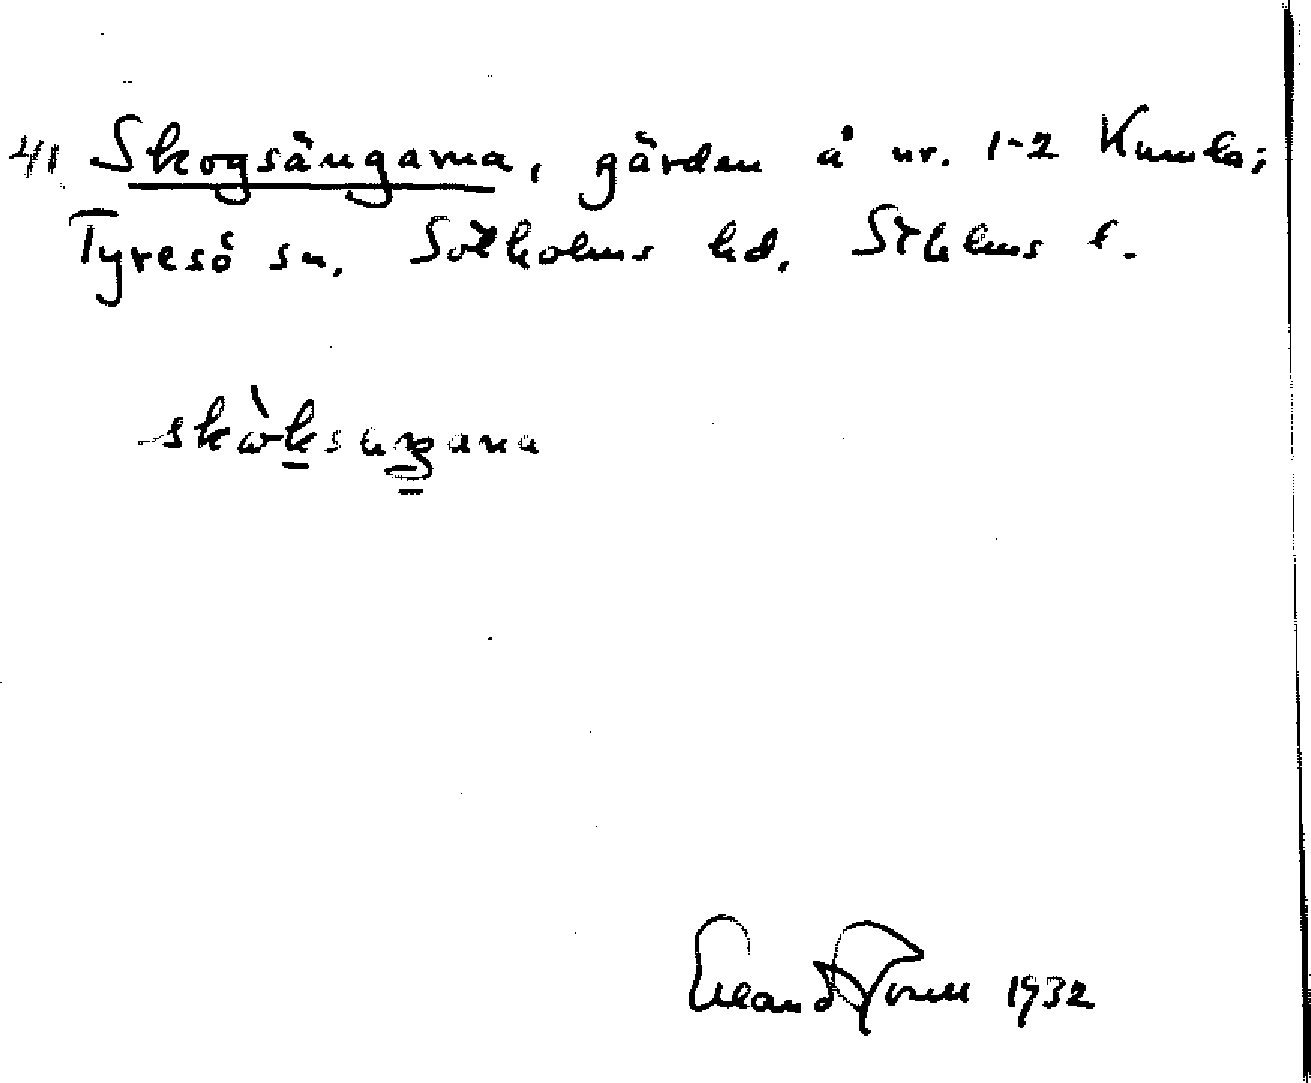 41 Skogsängarna, gärden å nr. 1-2 Kumla;
Tyresö sn. Sotholms hd. Sthlms l.
skò̀ksaŋana
Erland 1932